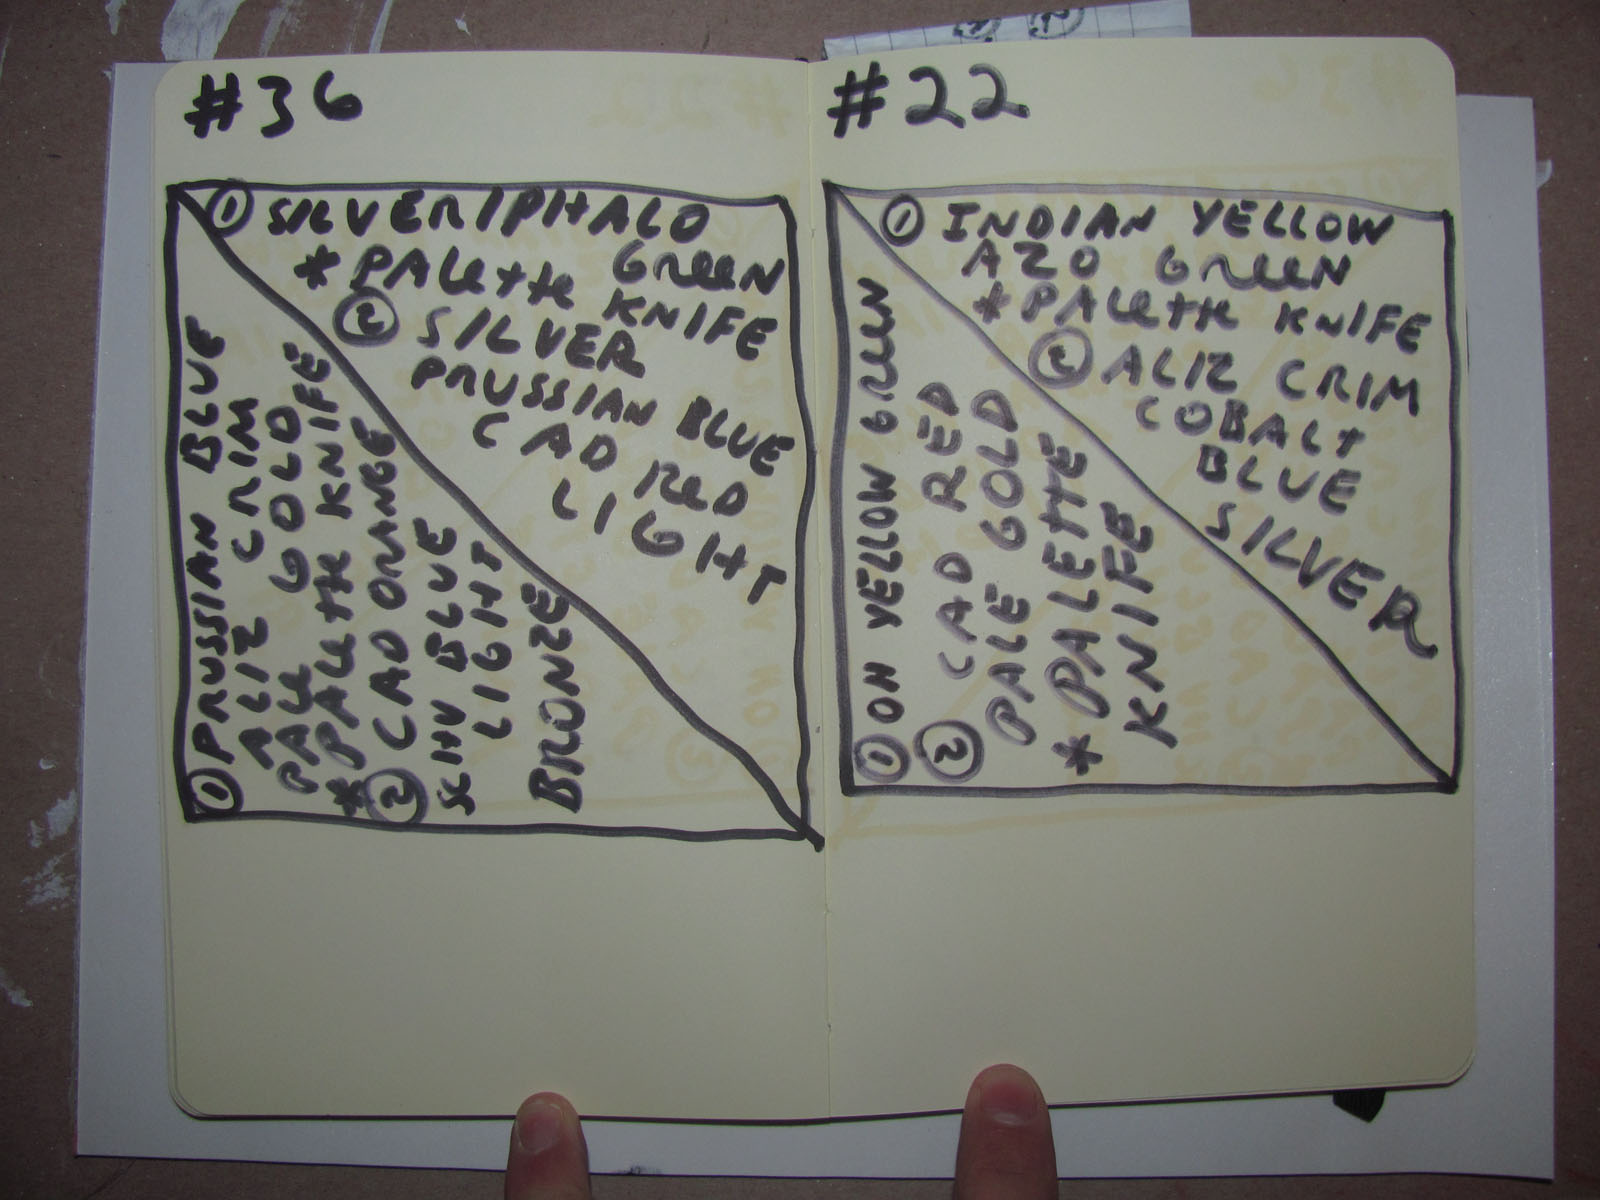 #36
① SILVER/PHALO
GREEN
* PALETTE KNIFE
② SILVER
PRUSSIAN BLUE
CAD RED
LIGHT
① PRUSSIAN BLUE
ALIZ CRIM
PALE GOLD
* PALETTE KNIFE
② CAD ORANGE
SCHV BLUE
LIGHT
BRONZE
#22
① INDIAN YELLOW
AZO GREEN
* PALETTE KNIFE
② ALIZ CRIM
COBALT
BLUE
SILVER
① OH YELLOW GREEN
② CAD RED
PALE GOLD
* PALETTE
KNIFE